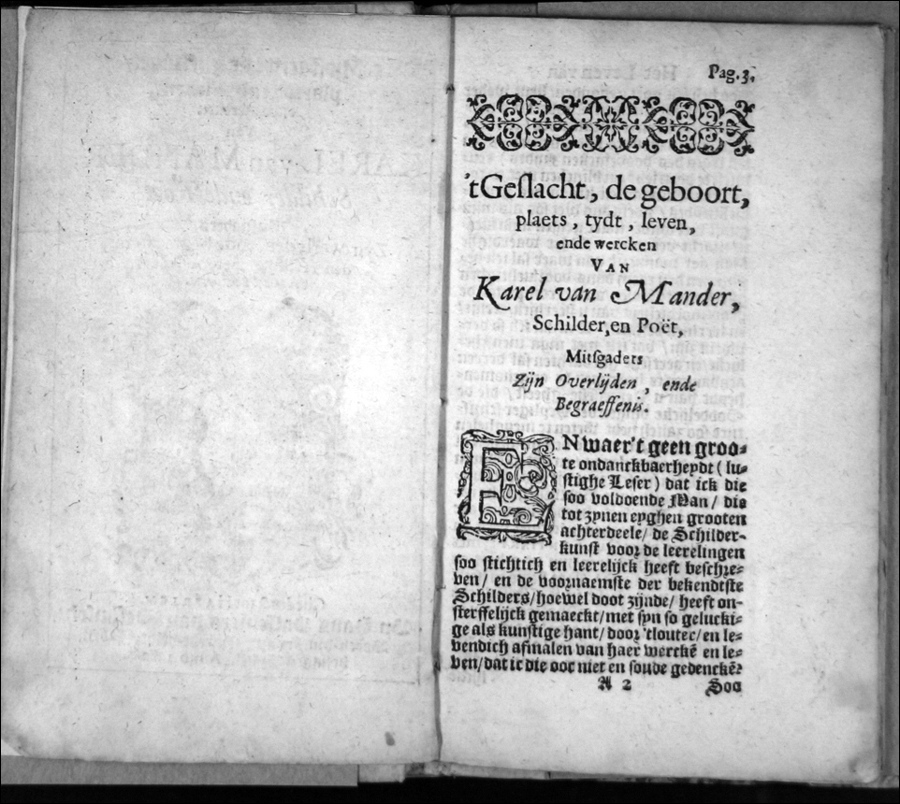 Pag.3.
'tGeslacht, de geboort,
plaets, tydt, leven,
ende wercken
VAN
Karel van Mander,
Schilder, en Poët,
Mitsgaders
Zijn Overlijden, ende
Begraeffenis.
EN waer't geen groo-
te ondanckbaerheydt (lu-
stighe Leser) dat ick die
soo voldoende Man/ die
tot zynen eyghen grooten
achterdeele/ de Schilder-
kunst voor de leerelingen
soo stichtich en leerelijck heeft beschre-
ven/ en de voornaemste der bekendtste
Schilders/ hoewel doot zijnde/ heeft on-
sterffelijck gemaeckt/ met syn so gelucki-
ge als kunstige hant/ door 'tlouter/ en le-
vendich afmalen van haer werckē en le-
ven/ dat ic die ooc niet en soude gedenckē?
A 2 Soo